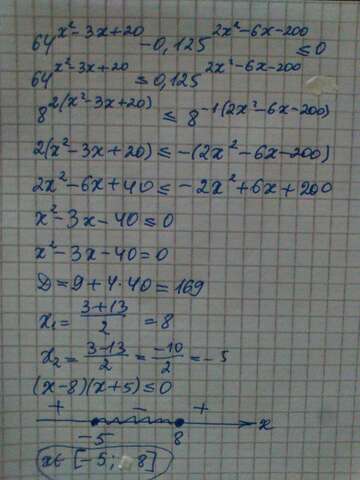 64^(x²-3x+20) - 0,125^(2x²-6x-200) ≤ 0
64^(x²-3x+20) ≤ 0,125^(2x²-6x-200)
8^(2(x²-3x+20)) ≤ 8^(-1(2x²-6x-200))
2(x²-3x+20) ≤ -(2x²-6x-200)
2x²-6x+40 ≤ -2x²+6x+200
x²-3x-40 ≤ 0
x²-3x-40=0
D=9+4·40=169
x₁= (3+13)/2 =8
x₂= (3-13)/2 = (-10)/2 = -5
(x-8)(x+5)≤0
+ - +
-5 8 x
x∈ [-5; 8]